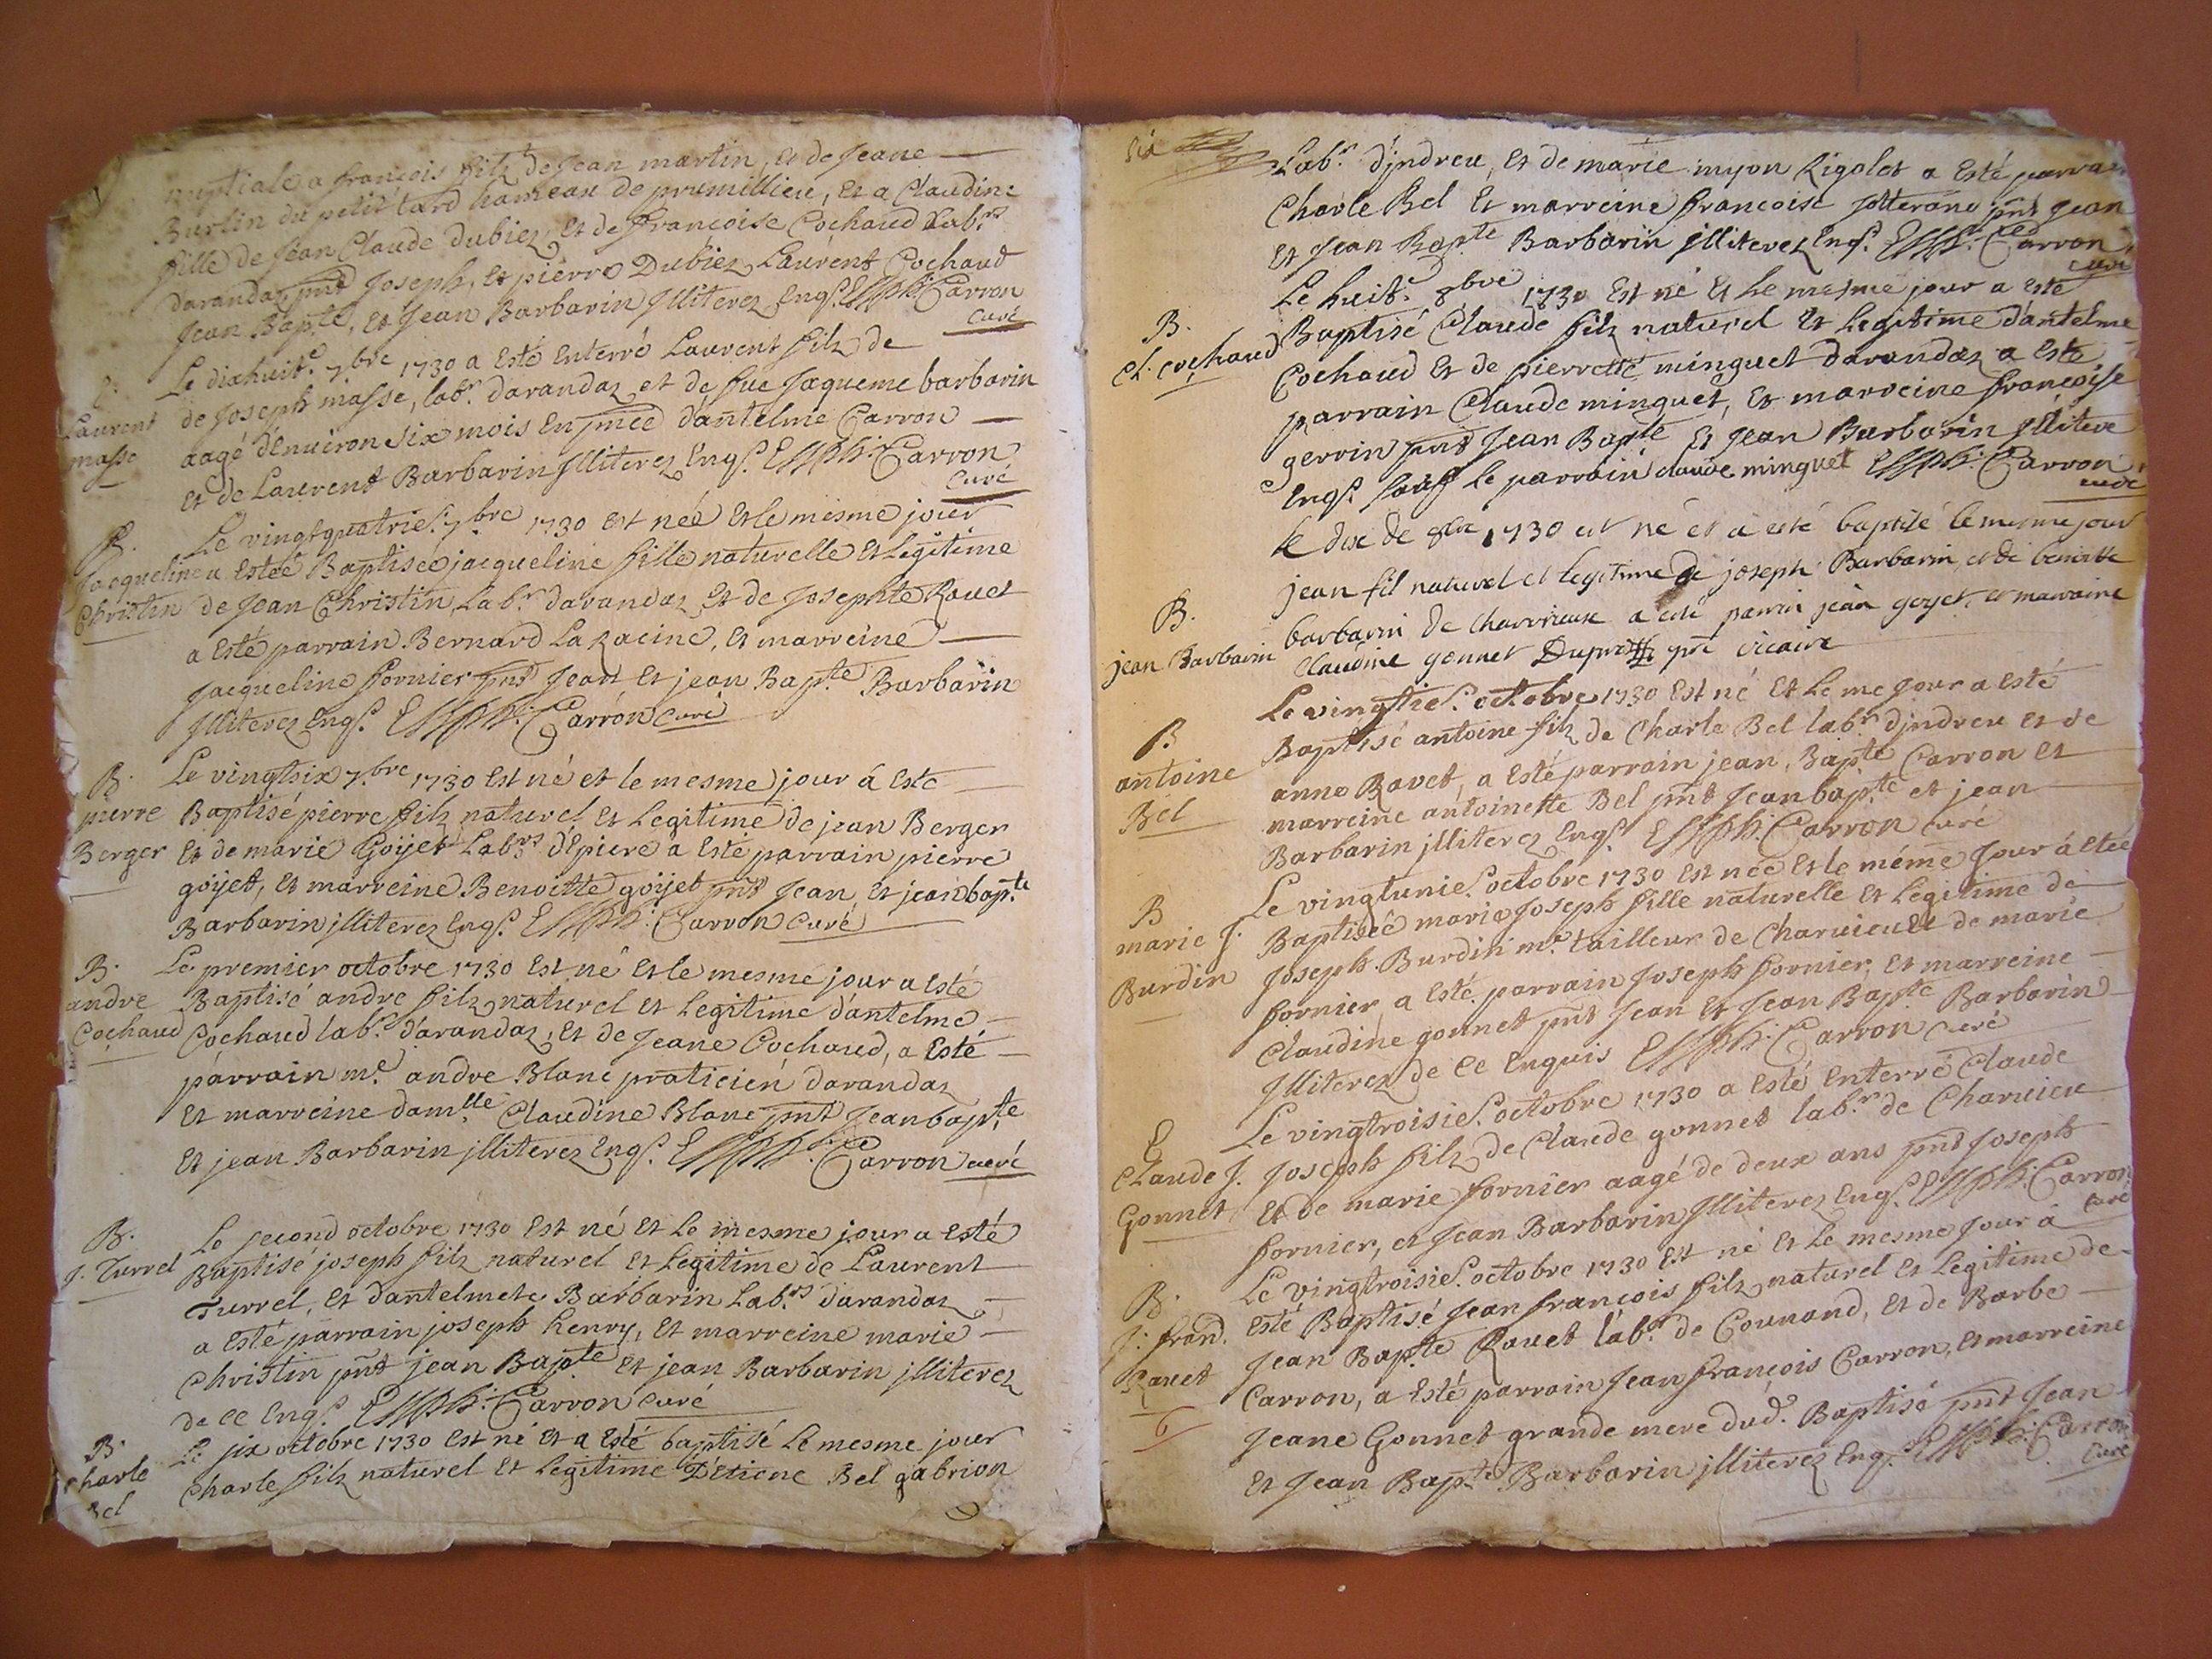 nuptiale a françois filz de Jean martin, et de Jeane
Burlin du petit tard hameau de prumillieu, et a Claudine
fille de Jean Claude Dubiez, et de françoise Cochaud Lab.rs
darandaz pnt Joseph, et pierre Dubiez Laurent Cochaud
Jean Bap.te, et Jean Barbarin Jlliterez Enq.s Carron
Curé
E.
Laurent
masse
Le dixhuit.e 7.bre 1730 a Esté Enterré Laurent filz de
de Joseph masse, lab.r darandaz et de fue Jaqueme barbarin
aagé d'Enuiron six mois En pnce d'antelme Carron
et de Laurent Barbarin Jlliterez Enq.s Carron
Curé
B.
Jacqueline
Christin
Le vingtquatrie.s 7.bre 1730 est née Et le mesme jour
a estée Baptisée jacqueline fille naturelle Et Legitime
de Jean Christin, Lab.r darandaz Et de Josephte Rauet
a Esté parrain Bernard La Racine, et marreine
Jacqueline fornier pnt Jean Et jean Bap.te Barbarin
Jlliterez Enq.s Carron Curé
B.
pierre
Berger
Le vingtsix 7.bre 1730 est né et le mesme jour á Esté
Baptisé pierre filz naturel Et Legitime de jean Berger
Et de marie Goÿet Lab.rs d'Epiere a Esté parrain pierre
goÿet, et marreine Benoitte goÿet pnt Jean, Et jean bap.te
Barbarin jlliterez Enq.s Carron Curé
B.
andre
Cochaud
Le premier octobre 1730 Est né Et le mesme jour a Esté
Baptisé andre filz naturel et Legitime d'antelme
Cochaud lab.r d'arandaz, Et de Jeane Cochaud, a Esté
parrain m.e andre Blanc praticien darandaz
Et marreine dam.lle Claudine Blanc pnt Jean bap.te
Et jean Barbarin jlliterez Enq.s Carron curé
B.
J. Turrel
Le second octobre 1730 Est né Et Le mesme jour a Esté
Baptisé joseph filz naturel Et Legitime de Laurent
Turrel, Et dantelmete Barbarin Lab.rs darandaz
a Esté parrain joseph henry, Et marreine marie
Christin pnt jean Bap.te Et jean Barbarin jlliterez
de ce Enq.s Carron Curé
B.
Charle
Bel
Le six octobre 1730 Est né Et a Esté baptisé Le mesme jour
Charle filz naturel Et Legitime D'Etiene Bel gabrion
six
Lab.r d'jndreu, Et de marie myon Rigolet a Esté parrain
Charle Bel Et marreine francoise pnt Jean
Et Jean Bap.te Barbarin Jlliterez Enq.s Carron
curé
B.
Cl. Cochaud
Le huit.e 8.bre 1730 Est né Et Le mesme jour a Esté
Baptisé Claude filz naturel Et Legitime d'antelme
Cochaud Et de pierrette minguet darandaz a Esté
parrain Claude minguet, Et marreine françoise
gerrin pnt Jean Bap.te Et Jean Barbarin Jlliteré
Enq.s sauff Le parrain claude minguet Carron
curé
B.
jean Barbarin
le dix de 8bre 1730 est né et a esté baptisé le mesme jour
jean fil naturel et legitime de joseph Barbarin, et de benoitte
barbarin de charvieux a esté parrin jean goyet, et marraine
Claudine gonnet pre vicaire
B.
antoine
Bel
Le vingtie.s octobre 1730 Est né Et Le me Jour a Esté
Baptisé antoine filz de Charle Bel lab.r d'jndreu Et de
anne Ravet, a Esté parrain jean, Bap.te Carron et
marreine antoinette Bel pnt Jean bap.te et jean
Barbarin jlliterez Enq.s Carron curé
B
marie J.
Burdin
Le vingtunie.s octobre 1730 Est née Et le méme Jour á Etée
Baptisée marie Joseph fille naturelle Et Legitime de
Joseph Burdin m.e tailleur de Charuieu Et de marie
fornier, a Esté parrain Joseph fornier, Et marreine
Claudine gonnet pnt Jean Et Jean Bap.te Barbarin
Jlliterez de ce Enquis Carron curé
E
Claude J.
Gonnet
Le vingtroisie.s octobre 1730 a Esté Enterré Claude
Joseph filz de Claude gonnet lab.r de Charuieu
Et de marie fornier aagé de deux ans pnt Joseph
fornier, et Jean Barbarin Jlliterez Enq.s Carron
curé
B.
J. fran.
Rauet
6
Le vingtroisie.s octobre 1730 Est né Et Le mesme Jour a
Esté Baptisé Jean françois filz naturel Et Legitime de
Jean Bap.te Rauet lab.r de Counand, Et de Barbe
Carron, a Esté parrain Jean françois Carron, Et marreine
Jeane Gonnet grande mere dud. Baptisé pnt Jean
Et Jean Bap.te Barbarin jlliterez Enq.s Carron
Curé